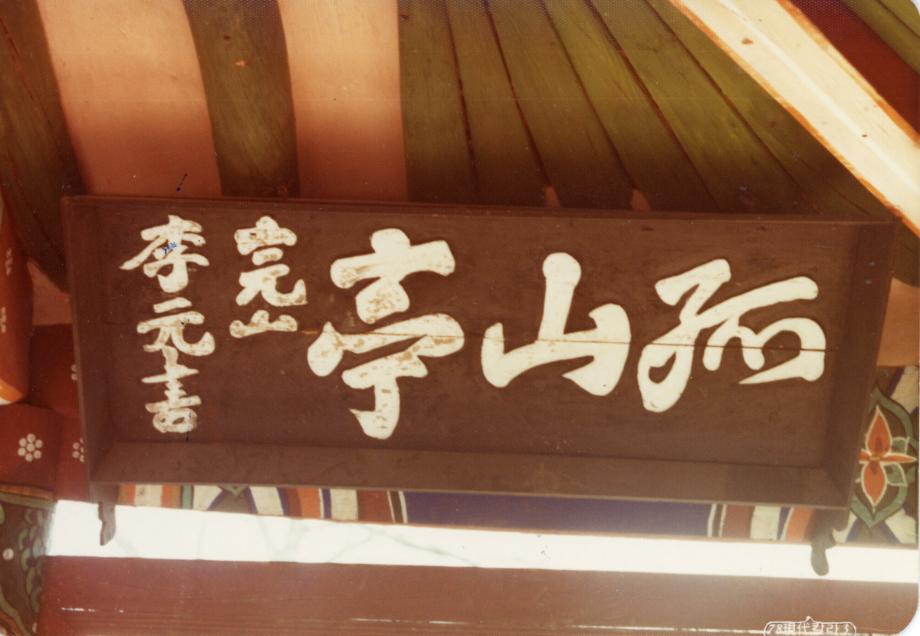 孤山亭
完山
李元吉
78現代칼라 3